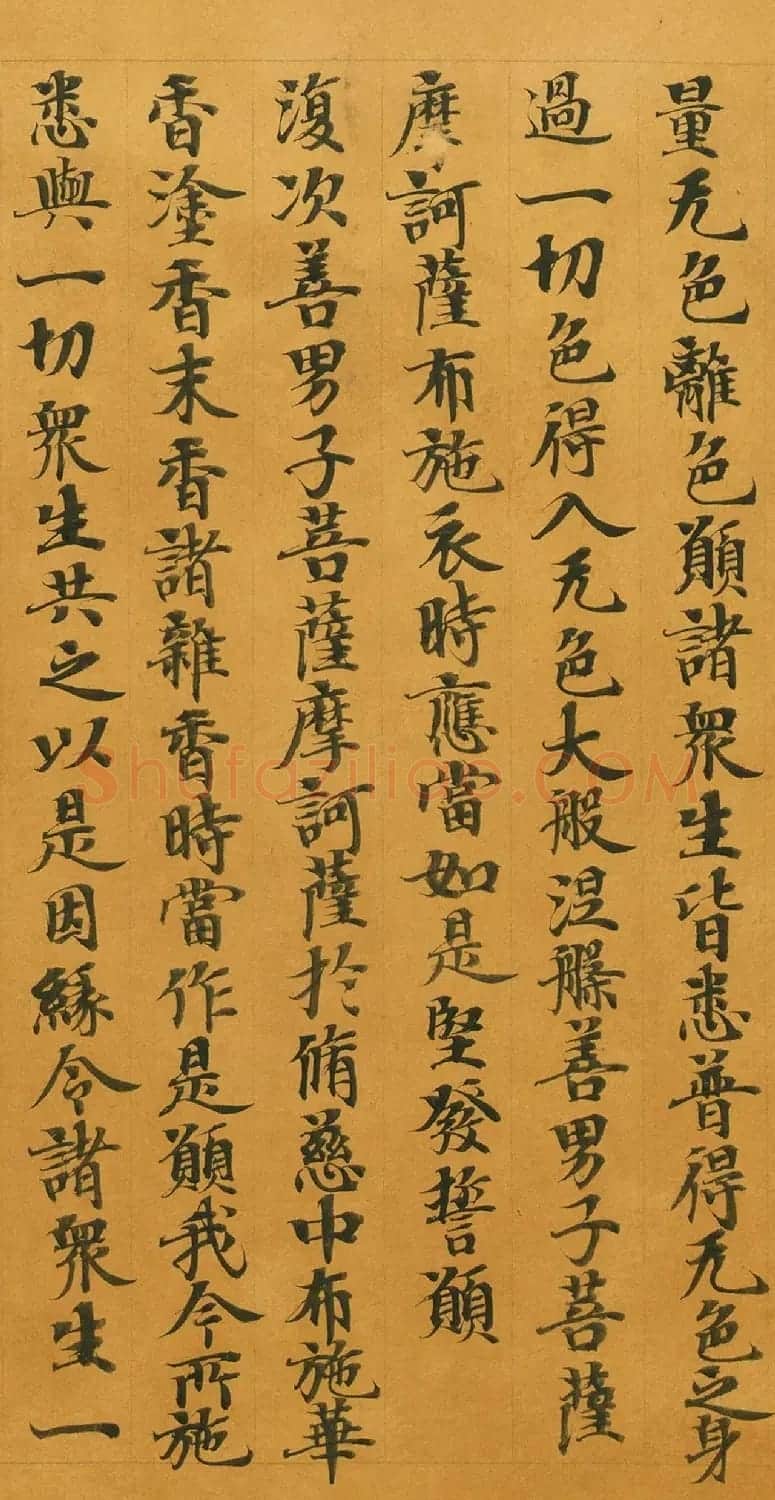 量无色離色願諸衆生皆悉普得无色之身
過一切色得入无色大般涅槃善男子菩薩
摩訶薩布施衣時應當如是堅發誓願
復次善男子菩薩摩訶薩於脩慈中布施華
香塗香末香諸雜香時當作是願我今所施
悉與一切衆生共之以是因緣令諸衆生一
Shufaziliao.COM